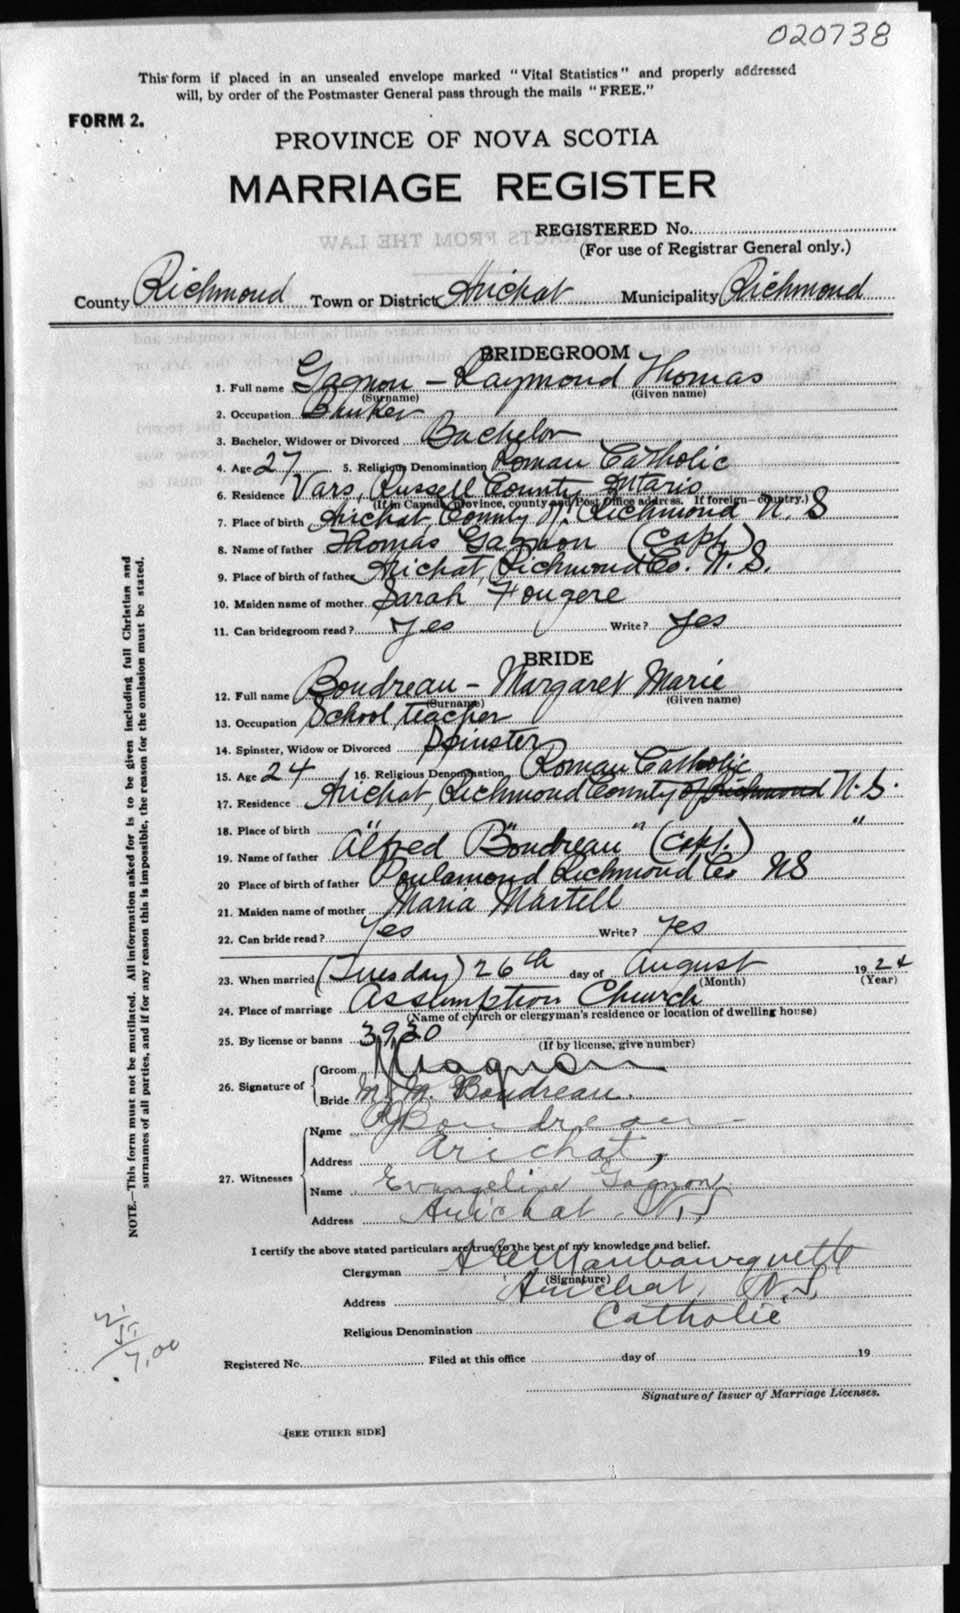 020738
This form if placed in an unsealed envelope marked "Vital Statistics" and properly addressed
will, by order of the Postmaster General pass through the mails "FREE."
FORM 2.
PROVINCE OF NOVA SCOTIA
MARRIAGE REGISTER
REGISTERED No.
(For use of Registrar General only.)
County Richmond Town or District Arichat Municipality Richmond
BRIDEGROOM
1. Full name Gagnon - Raymond Thomas
(Surname) (Given name)
2. Occupation Banker
3. Bachelor, Widower or Divorced Bachelor
4. Age 27 5. Religious Denomination Roman Catholic
6. Residence Vars, Russell County Ontario
(If in Canada, province, county and Post Office address. If foreign—country.)
7. Place of birth Arichat, County of Richmond N. S
8. Name of father Thomas Gagnon (Capt)
9. Place of birth of father Arichat, Richmond Co. N. S.
10. Maiden name of mother Sarah Fougere
11. Can bridegroom read? Yes Write? Yes
BRIDE
12. Full name Boudreau - Margaret Marie
(Surname) (Given name)
13. Occupation School teacher
14. Spinster, Widow or Divorced Spinster
15. Age 24 16. Religious Denomination Roman Catholic
17. Residence Arichat, Richmond County of Richmond N. S.
18. Place of birth " " " "
19. Name of father Alfred Boudreau (Capt.)
20 Place of birth of father Poulamond Richmond Co NS
21. Maiden name of mother Maria Martell
22. Can bride read? Yes Write? Yes
23. When married (Tuesday) 26th day of August 1924
(Month) (Year)
24. Place of marriage Assumption Church
(Name of church or clergyman's residence or location of dwelling house)
25. By license or banns 3930
(If by license, give number)
26. Signature of Groom Gagnon
Bride M. M. Boudreau.
27. Witnesses Name Boudreau
Address Arichat,
Name Evangeline Gagnon
Address Arichat N.S
I certify the above stated particulars are true to the best of my knowledge and belief.
Clergyman
(Signature)
Address Arichat, N.S,
Religious Denomination Catholic
Registered No. Filed at this office day of 19
Signature of Issuer of Marriage Licenses.
[SEE OTHER SIDE]
NOTE.—This form must not be mutilated. All information asked for is to be given including full Christian and
surnames of all parties, and if for any reason this is impossible, the reason for the omission must be stated.
7.00